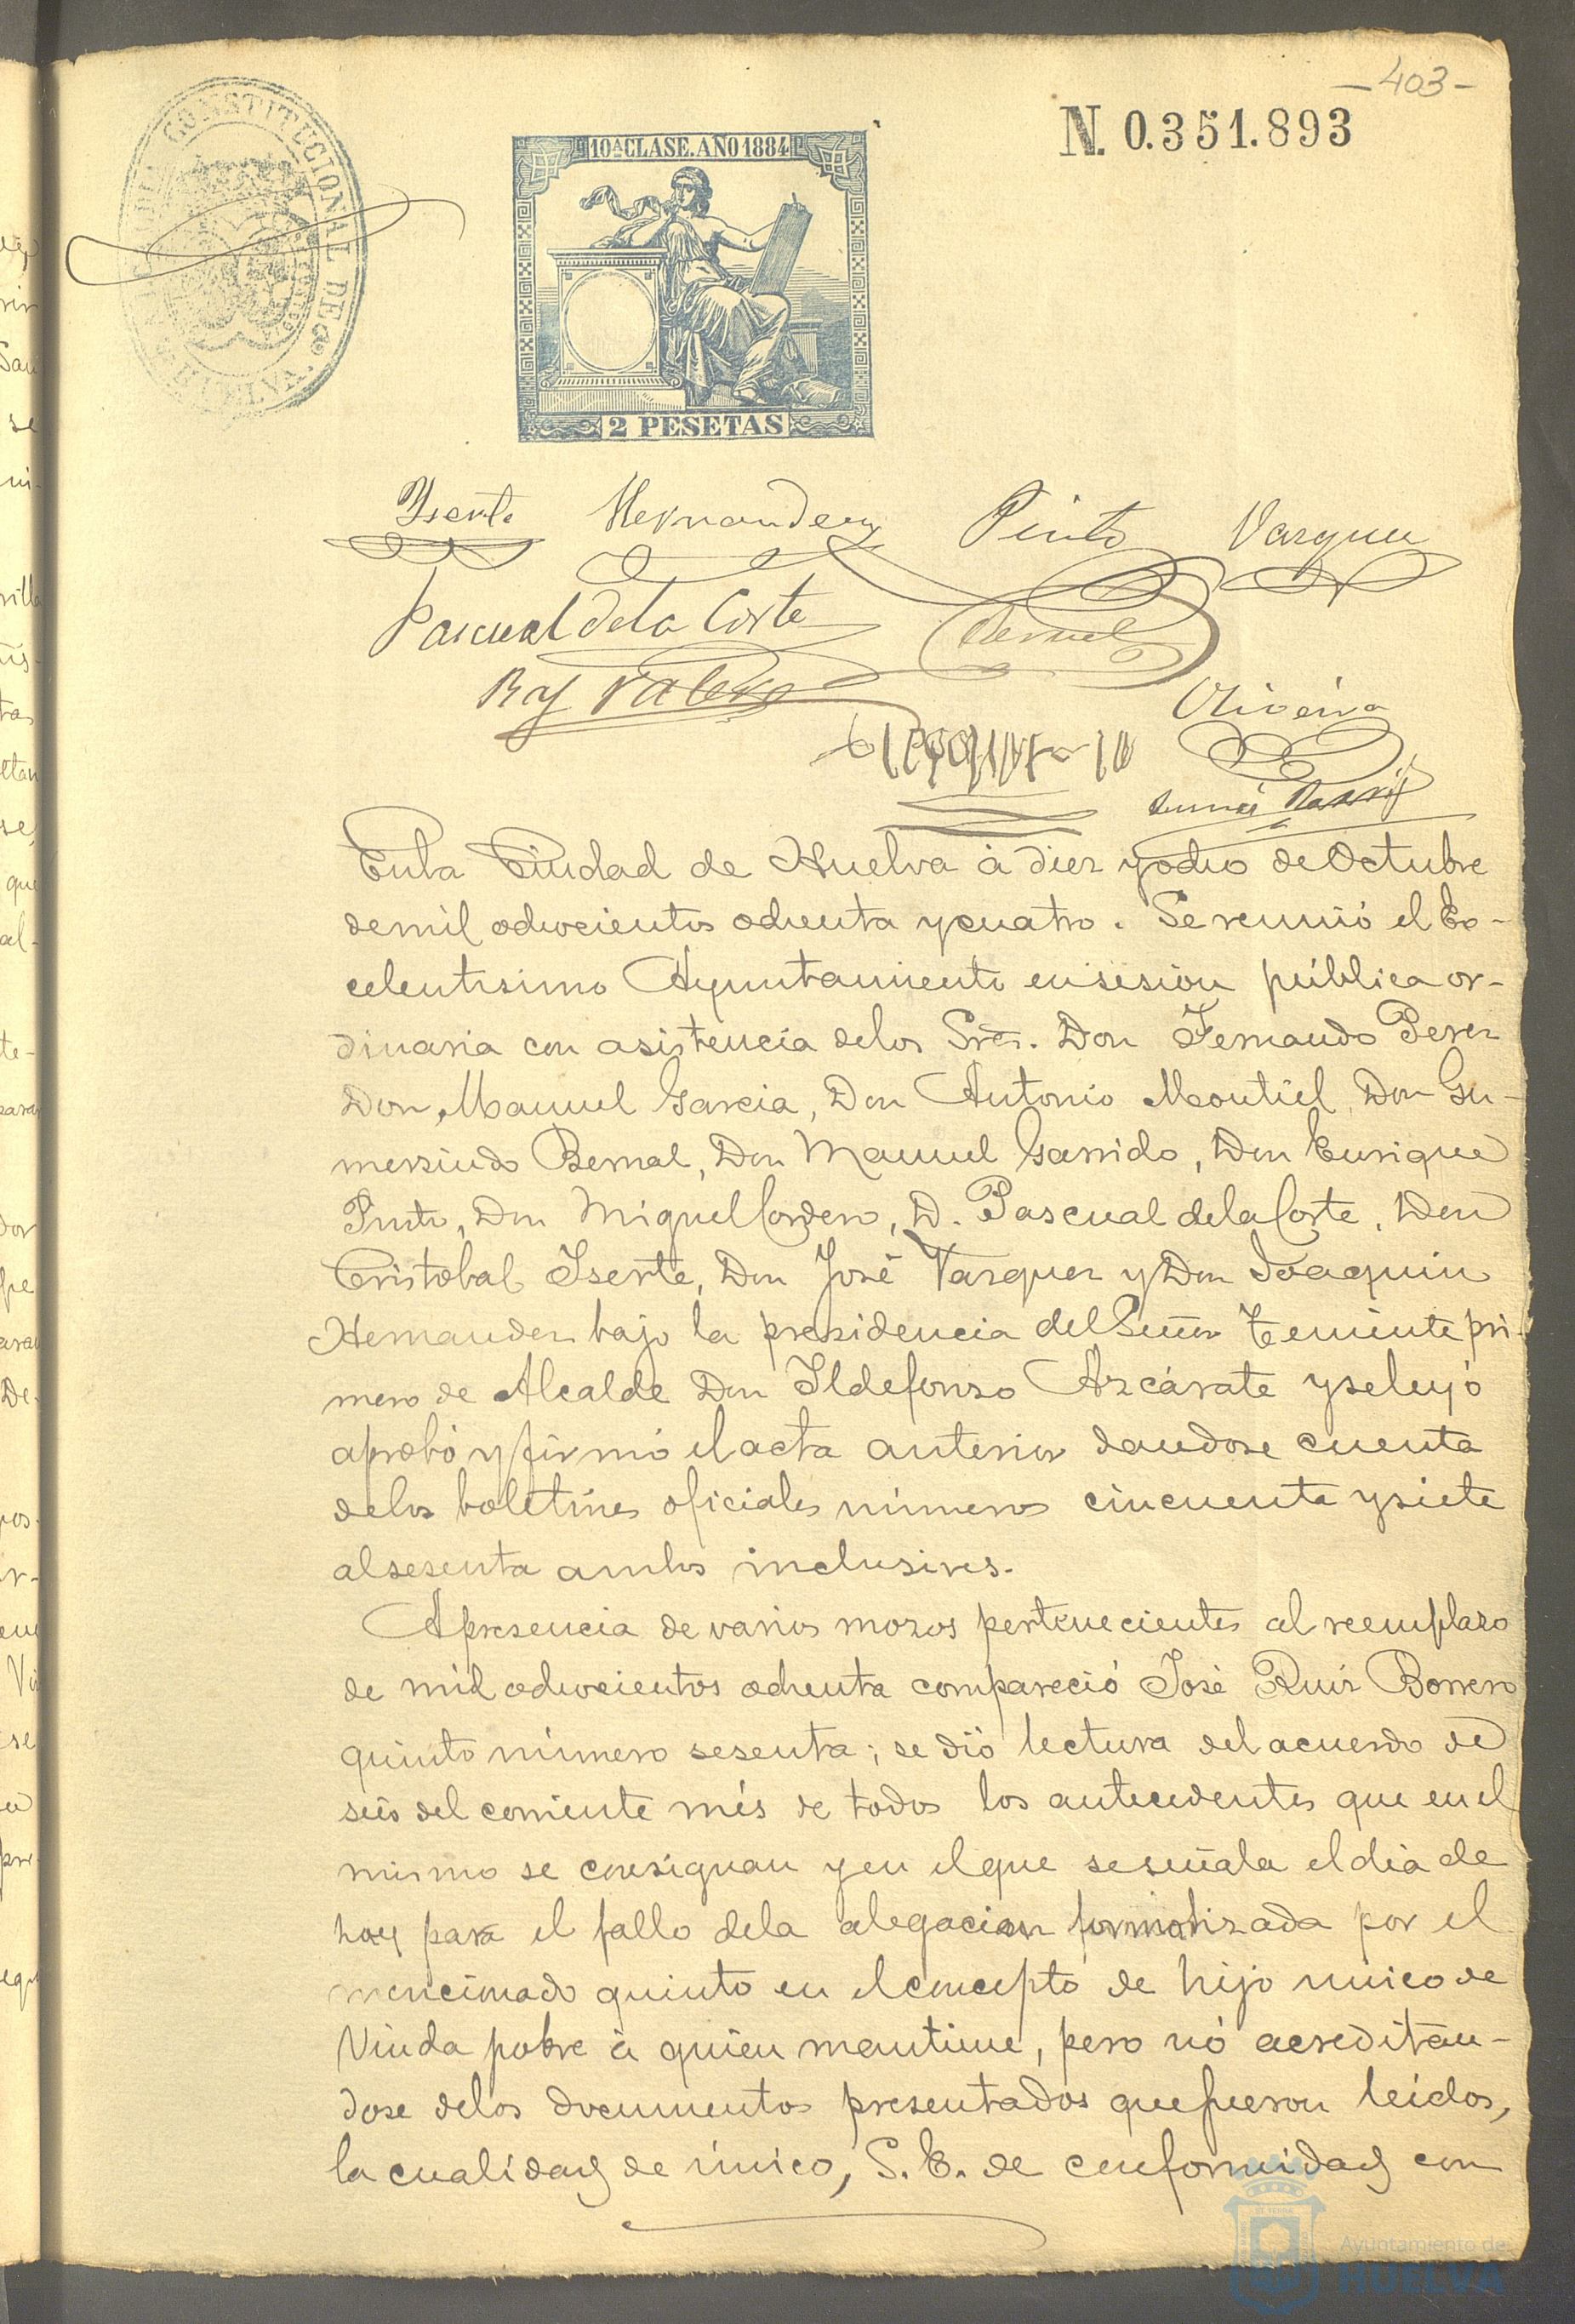 -403-
N. 0.351.893
ALCALDIA CONSTITUCIONAL DE HUELVA
10ª CLASE. AÑO 1884
2 PESETAS
Yserte Hernandez Pinto Vazquez
Pascual de la Corte Bernal
Raf Valero
Oliveira
En la Ciudad de Huelva à diez y ocho de Octubre
de mil ochocientos ochenta y cuatro. Se reunió el Ex-
celentisimo Ayuntamiento en sesión pública or-
dinaria con asistencia de los Sres. Don Fernando Perez
Don Manuel Garcia, Don Antonio Montiel, Don Gu-
mersindo Bernal, Don Manuel Garrido, Don Enrique
Pinto, Don Miguel Cordero, D. Pascual de la Corte, Don
Cristobal Iserte, Don José Vazquez y Don Joaquin
Hernandez bajo la presidencia del Señor Teniente pri-
mero de Alcalde Don Ildefonso Azcárate y se leyó
aprobó y firmó el acta anterior dandose cuenta
de los boletines oficiales numeros cincuenta y siete
al sesenta ambos inclusives.
A presencia de varios mozos pertenecientes al reemplazo
de mil ochocientos ochenta compareció José Ruiz Borrero
quinto número sesenta; se dió lectura del acuerdo de
seis del corriente mes de todos los antecedentes que en el
mismo se consignan y en el que se señala el dia de
hoy para el fallo de la alegacion formalizada por el
mencionado quinto en el concepto de hijo unico de
Viuda pobre à quien mantiene, pero nó acreditan-
dose de los documentos presentados que fueron leidos,
la cualidad de único, S. E. de conformidad con
Ayuntamiento de
HUELVA